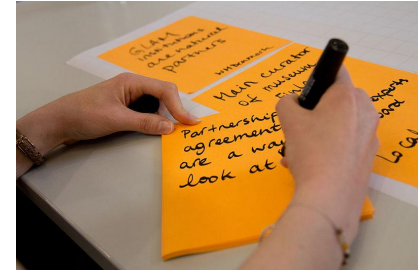 GLAM
institutions
are natural
partners
WMDenmark
Main curator
of museum
Partnership
agreement
are a way
look at